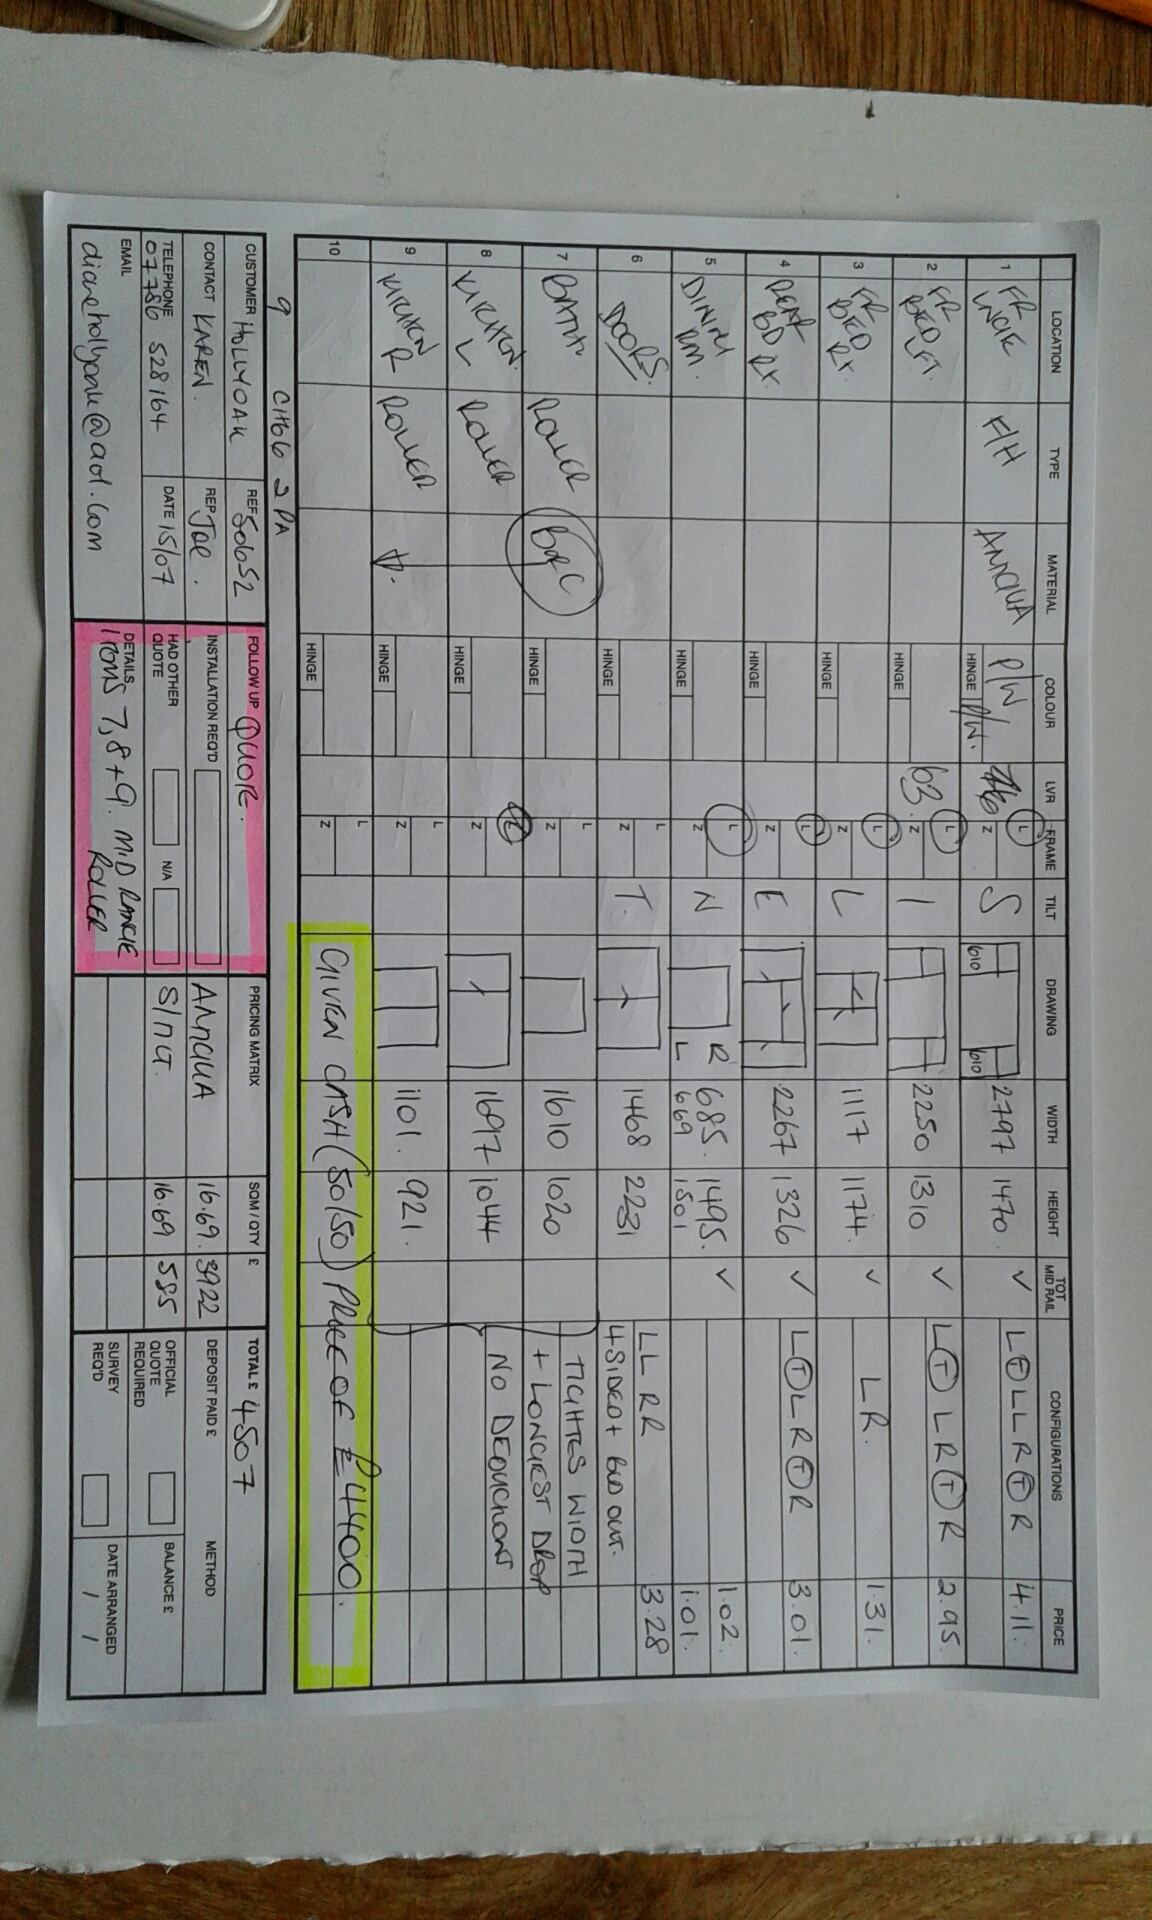 LOCATION TYPE MATERIAL COLOUR LVR FRAME TILT DRAWING WIDTH HEIGHT TOT MID RAIL CONFIGURATIONS PRICE
1 FR F/H P/W 76 L Z S 610 610 2797 1470 ✓ LⓉLLRⓉR 4.11
HINGE P/W.
2 FR BED LFT. HINGE 63. L Z I 2250 1310 ✓ LⓉLRⓉR 2.95
3 FR BED RX. HINGE L Z L 1117 1174. ✓ LR. 1.31.
4 REAR BD RX. HINGE L Z E 2267 1326 ✓ LⓉLRⓉR 3.01.
5 DINING RM. HINGE L Z N R 685. 1495. ✓ 1.02.
L 669 1501 1.01.
6 DOORS. HINGE L Z T. 1468 2231 LL RR 3.28
4 SIDED + BLD OUT.
7 BATH ROLLER HINGE L Z 1610 1020 TIGHTES WIDTH
+ LONGEST DROP
8 KITCHEN L ROLLER HINGE Z 1697 1044 NO DEDUCTIONS
9 KITCHEN R ROLLER HINGE L Z 1101. 921.
10 HINGE L Z GIVEN CASH (50/50) PRICE OF £4400.
9 CH66 2PA
CUSTOMER HOLLYOAK REF 50652 FOLLOW UP QUOTE. PRICING MATRIX SQM / QTY £ TOTAL £ 4507
CONTACT KAREN. REP Joe. INSTALLATION REQ'D 16.69. 3922 DEPOSIT PAID £ METHOD
TELEPHONE 07786 528164 DATE 15/07 HAD OTHER QUOTE N/A 16.69 585 OFFICIAL QUOTE REQUIRED BALANCE £
EMAIL dianehollyoak@aol.com DETAILS ITEMS 7,8+9. MID RANGE ROLLER SURVEY REQ'D DATE ARRANGED / /